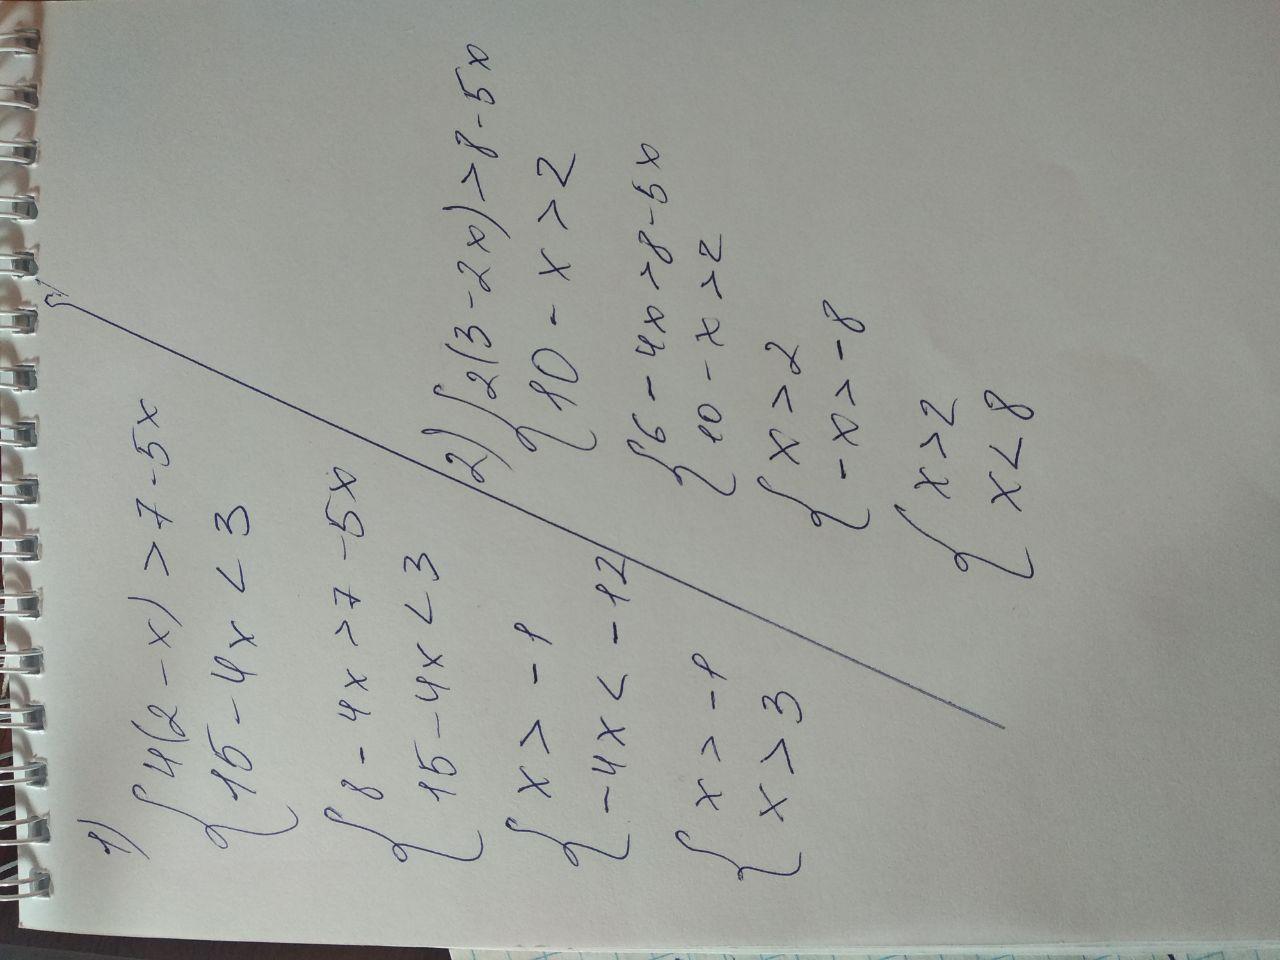 1)
{ 4(2 - x) > 7 - 5x
15 - 4x < 3
{ 8 - 4x > 7 - 5x
15 - 4x < 3
{ x > -1
-4x < -12
{ x > -1
x > 3
2) { 2(3 - 2x) > 8 - 5x
10 - x > 2
{ 6 - 4x > 8 - 5x
10 - x > 2
{ x > 2
-x > -8
{ x > 2
x < 8